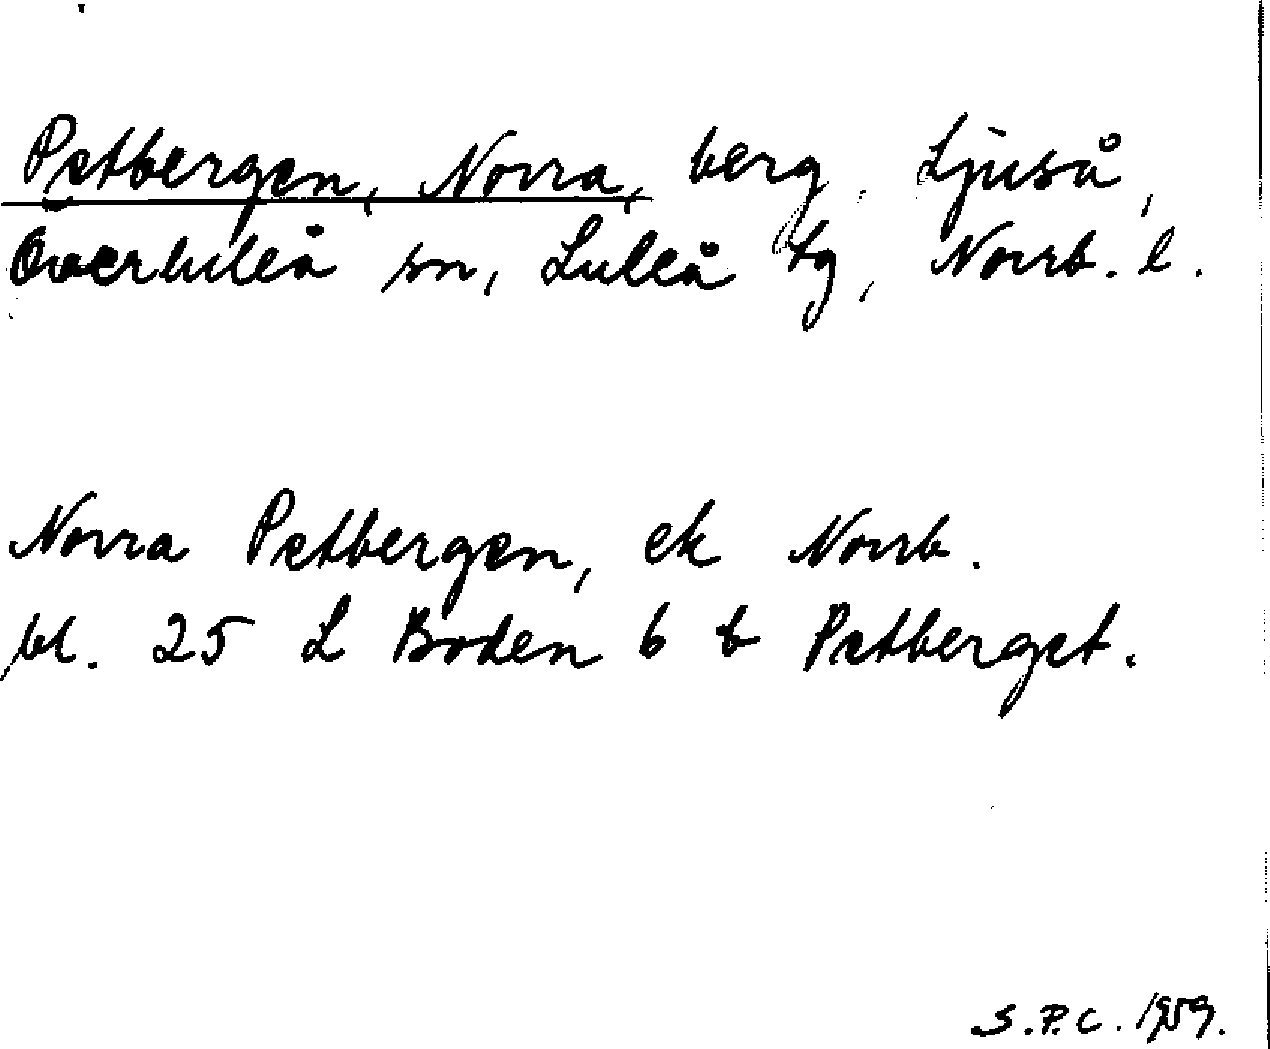 Petbergen, Norra, berg. Ljuså,
Överluleå sn, Luleå tg, Norrb. l.
Norra Petbergen, ek Norrb.
bl. 25 L Boden 6 b Petberget.
S.P.C. 1959.